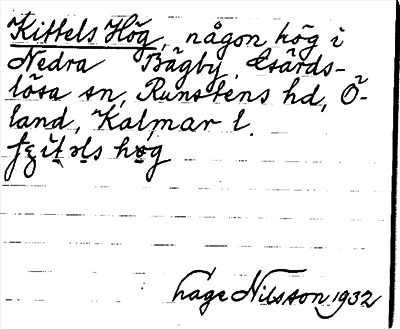 Kittels Hög, någon hög i
Nedra Bägby, Gårds-
lösa sn, Runstens hd, Ö-
land, Kalmar l.
hög
Nilsson 1932